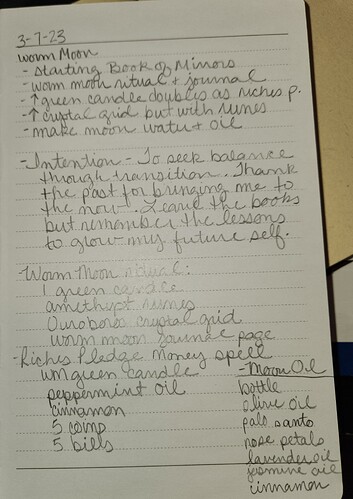 3-7-23
Worm Moon
- starting Book of Mirrors
- worm moon ritual + journal
- ↑ green candle doubles as riches p.
- ↑ crystal grid but with runes
- make moon water + oil
- Intention - To seek balance
through transition. Thank
the past for bringing me to
the now. Leave the books
but remember the lessons
to grow my future self.
- Worm Moon ritual:
1 green candle
amethyst runes
Ouroboros crystal grid
worm moon journal page
- Riches Pledge Money spell
WM green candle
peppermint oil
cinnamon
5 coins
5 bills
- Moon Oil
bottle
olive oil
palo santo
rose petals
lavender oil
jasmine oil
cinnamon